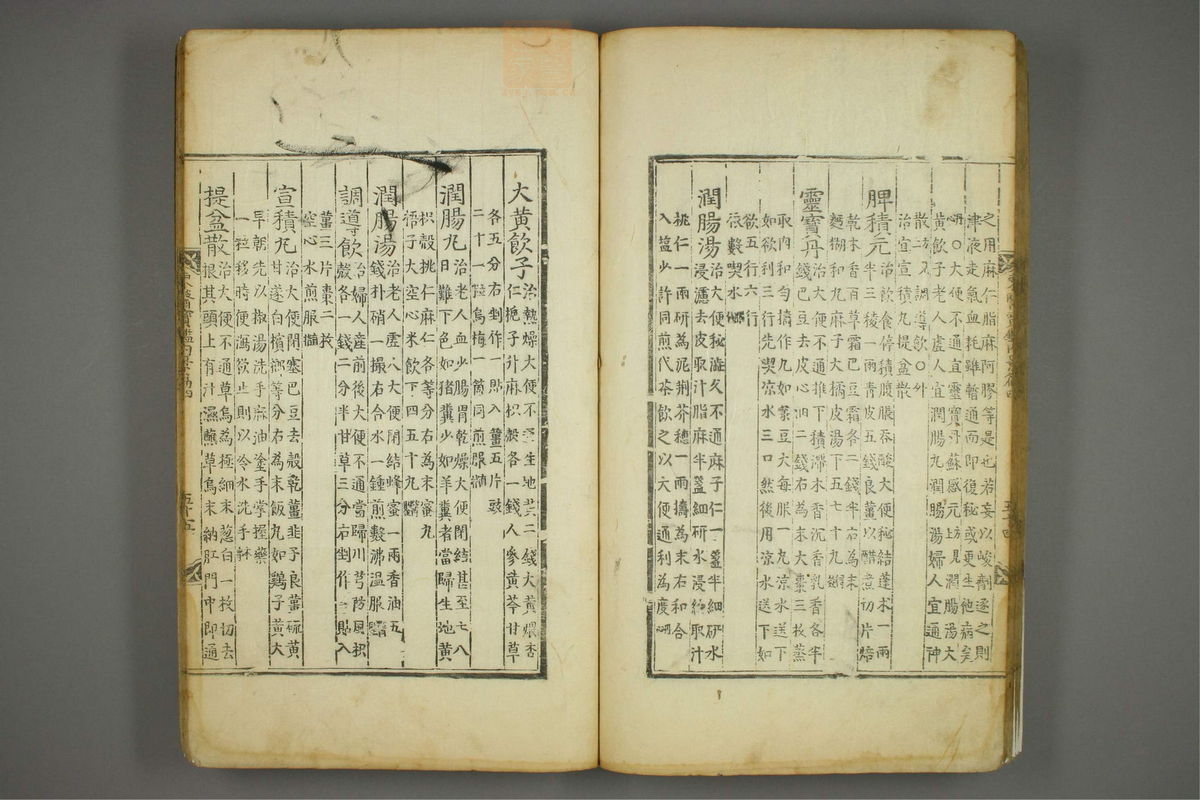 之用麻仁脂麻阿膠等是也若妄以峻劑逐之則
津液走氣血耗雖暫通而卽復秘或更生他病矣
○大便不通宜靈寶丹蘓感元方見潤腸湯大
黃飮子老人虛人宜潤腸丸潤腸湯婦人宜通神
散二方見調導飮○外
治宜宣積丸提盆散
脾積元治飮食停積腹脹呑酸大便秘結蓬朮一兩
半三稜一兩靑皮五錢良薑以醋煮切片焙
乾木香百草霜巴豆霜各二錢半右爲末
麵糊和丸麻子大橘皮湯下五七十丸
靈寶丹治大便不通推下積滯木香沉香乳香各半
錢巴豆去皮心油二錢右爲末大棗三枚蒸
取肉和勻擣作丸如菉豆大每服一丸凉水送下
如欲利三行先喫凉水三口然後用凉水送下如
欲五行六行
依數喫水
潤腸湯治大便秘澁久不通麻子仁一盞半細硏水
浸濾去皮取汁脂麻半盞細硏水浸取汁
桃仁一兩硏爲泥荊芥穗一兩擣爲末右和合
入塩少許同煎代茶飮之以大便通利爲度
大黃飮子治熱燥大便不通生地黃二錢大黃煨杏
仁梔子升麻枳殼各一錢人參黃芩甘草
各五分右剉作一貼入薑五片豉
二十一粒烏梅一箇同煎服
潤腸丸治老人血少腸胃乾燥大便閉結甚至七八
日難下色如猪糞少如羊糞者當歸生地黃
枳殼桃仁麻仁各等分右爲末蜜丸
梧子大空心米飮下四五十丸
潤腸湯治老人虛人大便閉結蜂蜜一兩香油五
錢朴硝一撮右合水一鍾煎數沸溫服
調導飮治婦人産前後大便不通當歸川芎防風枳
殼各一錢二分半甘草三分右剉作一貼入
薑三片棗二枚
空心水煎服
宣積丸治大便閉塞巴豆去殼乾薑韭子良薑硫黃
甘遂白檳榔等分右爲末飯丸如鷄子黃大
早朝先以椒湯洗手麻油塗手掌握藥
一粒移時便瀉欲止則以冷水洗手
提盆散治大便不通草烏爲極細末葱白一枚切去
根其頭上有汁濕蘸草烏末納肛門中卽通